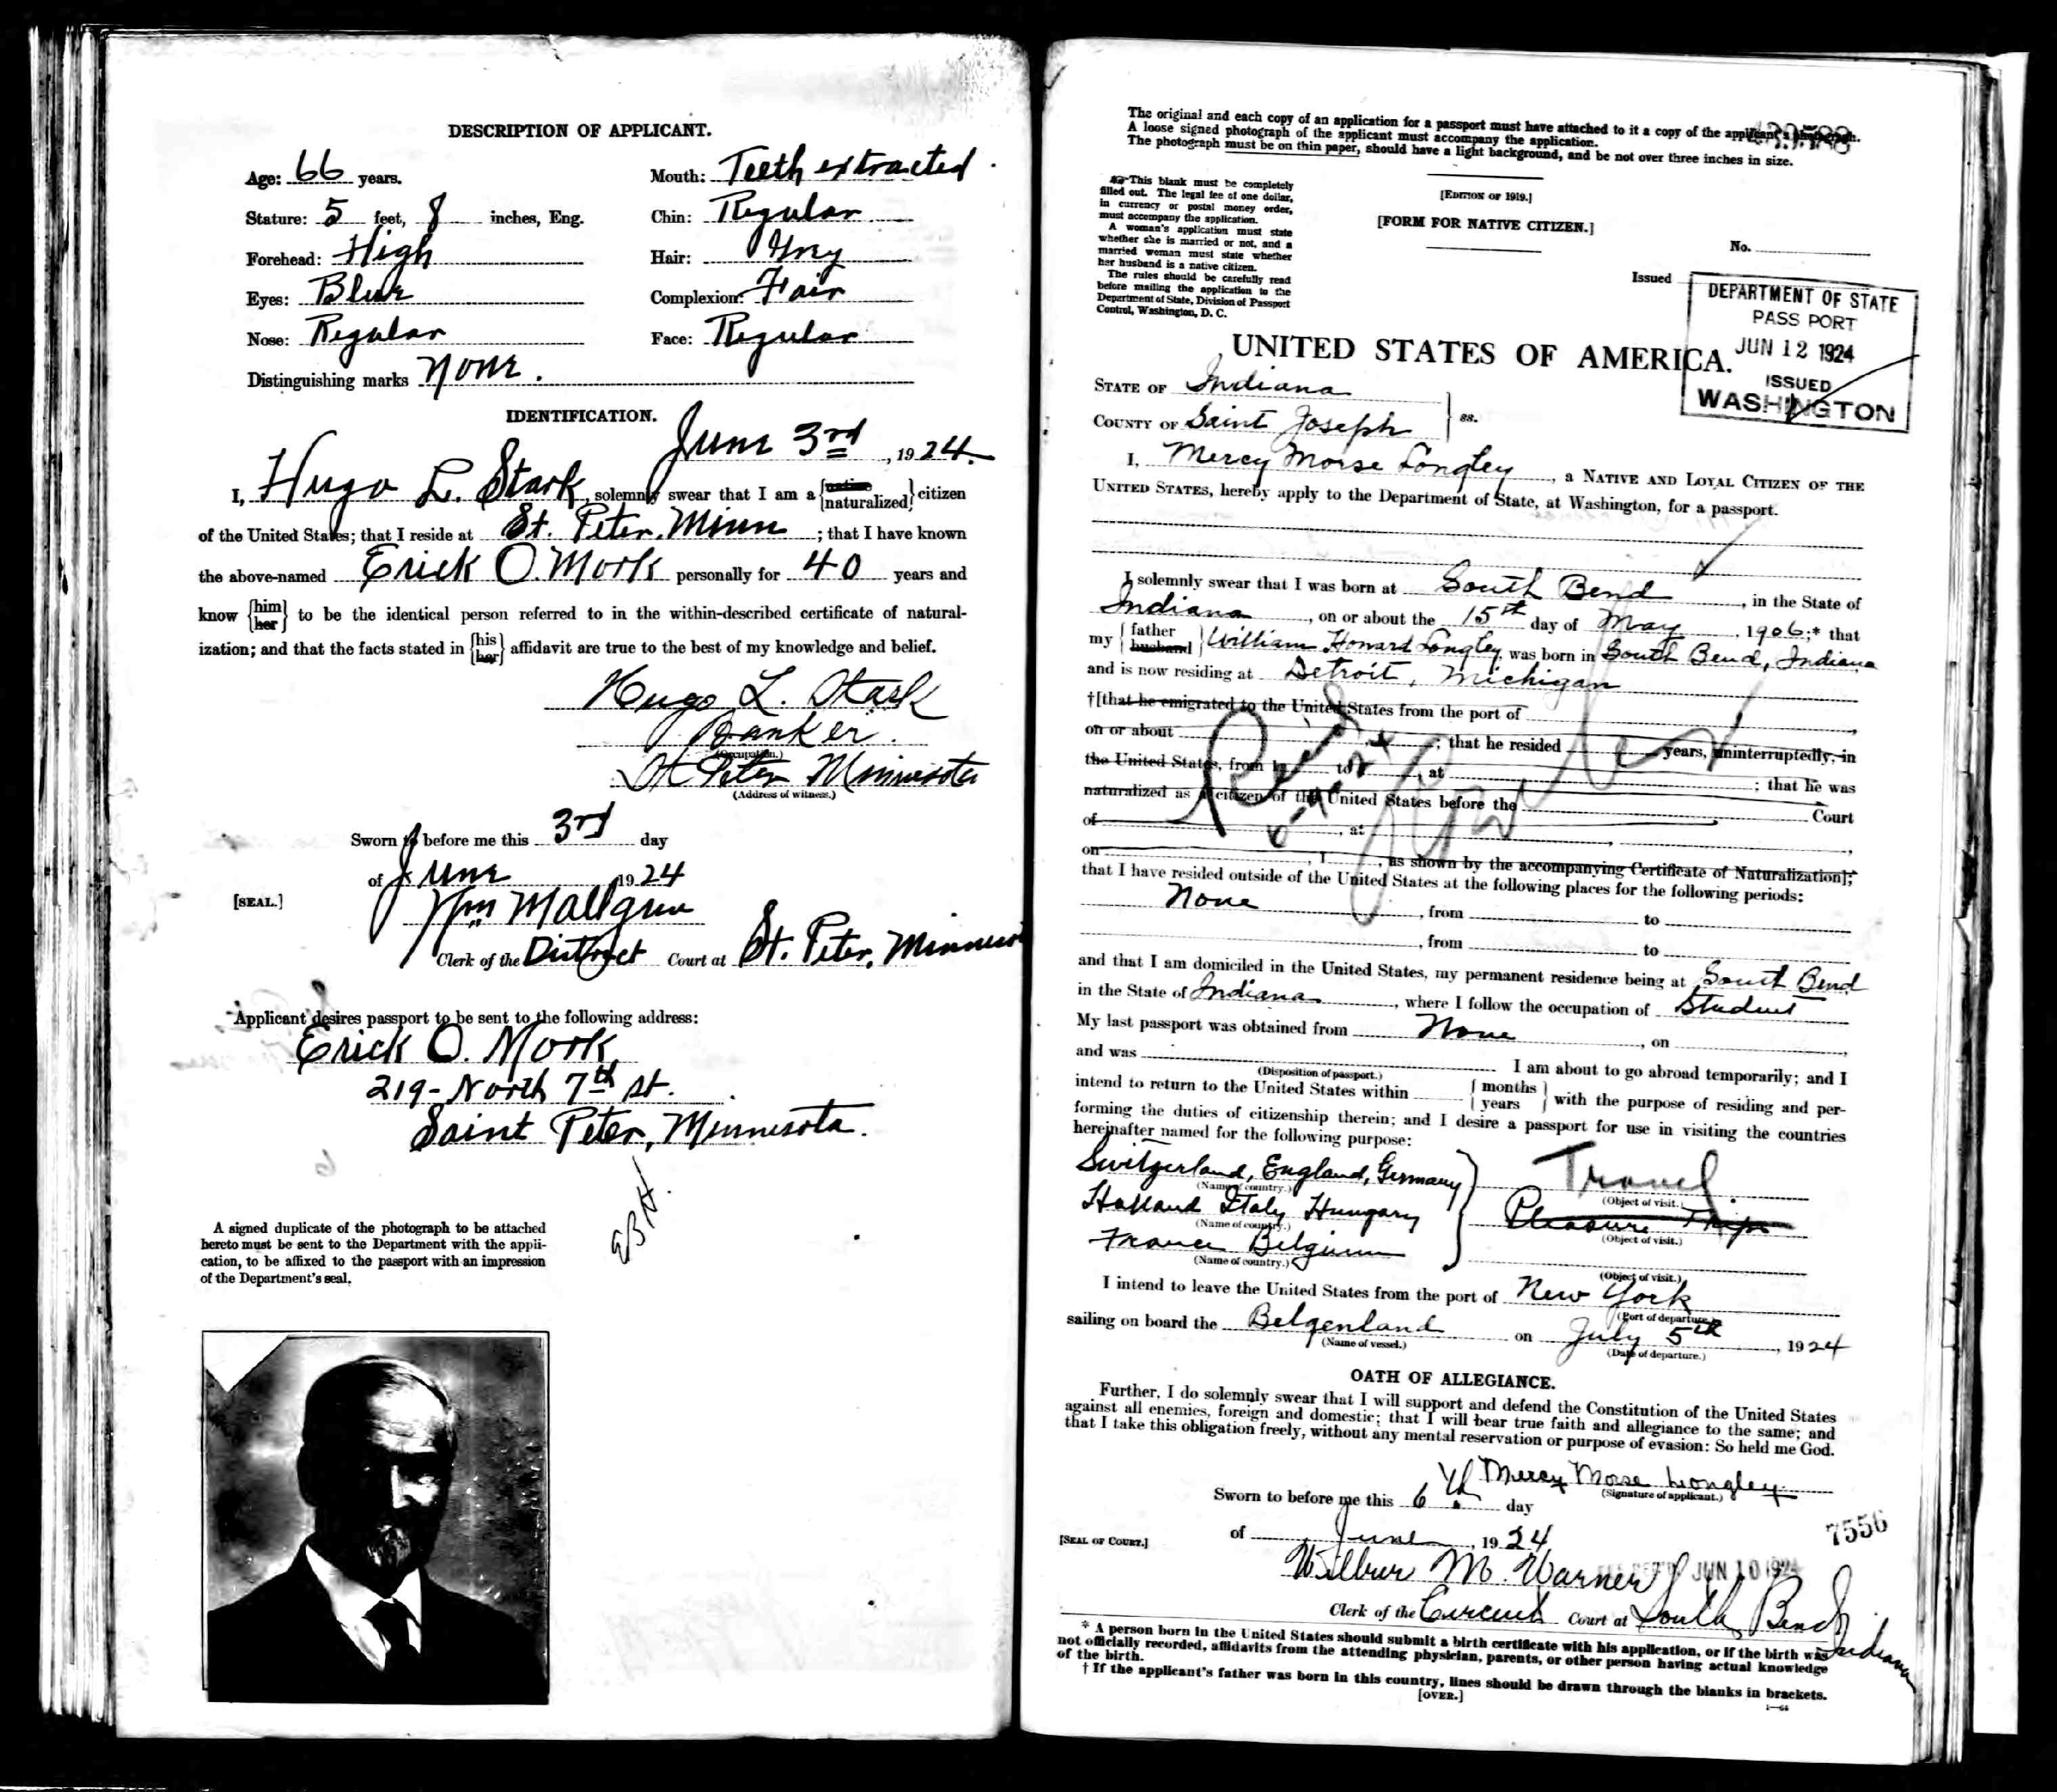 DESCRIPTION OF APPLICANT.
Age: 66 years.
Mouth: Teeth extracted.
Stature: 5 feet, 8 inches, Eng.
Chin: Regular
Forehead: High
Hair: Grey
Eyes: Blue
Complexion: Fair
Nose: Regular
Face: Regular
Distinguishing marks None.
IDENTIFICATION.
June 3rd, 1924.
I, Hugo L. Stark, solemnly swear that I am a {native naturalized} citizen
of the United States; that I reside at St. Peter, Minn; that I have known
the above-named Erick O. Mork personally for 40 years and
know {him her} to be the identical person referred to in the within-described certificate of natural-
ization; and that the facts stated in {his her} affidavit are true to the best of my knowledge and belief.
Hugo L. Stark
Banker.
(Occupation.)
St Peter Minnesota
(Address of witness.)
Sworn to before me this 3rd day
of June 1924
[SEAL.]
Wm Mallgren
Clerk of the District Court at St. Peter, Minnesota
Applicant desires passport to be sent to the following address:
Erick O. Mork,
219- North 7th St.
Saint Peter, Minnesota.
A signed duplicate of the photograph to be attached
hereto must be sent to the Department with the appli-
cation, to be affixed to the passport with an impression
of the Department's seal.
The original and each copy of an application for a passport must have attached to it a copy of the applicant's photograph.
A loose signed photograph of the applicant must accompany the application.
The photograph must be on thin paper, should have a light background, and be not over three inches in size.
This blank must be completely
filled out. The legal fee of one dollar,
in currency or postal money order,
must accompany the application.
A woman's application must state
whether she is married or not, and a
married woman must state whether
her husband is a native citizen.
The rules should be carefully read
before mailing the application to the
Department of State, Division of Passport
Control, Washington, D. C.
[EDITION OF 1919.]
[FORM FOR NATIVE CITIZEN.]
No.
Issued
DEPARTMENT OF STATE
PASSPORT
JUN 12 1924
ISSUED
WASHINGTON
UNITED STATES OF AMERICA.
STATE OF Indiana
COUNTY OF Saint Joseph
ss.
I, Mercy Morse Longley, a NATIVE AND LOYAL CITIZEN OF THE
UNITED STATES, hereby apply to the Department of State, at Washington, for a passport.
I solemnly swear that I was born at South Bend, in the State of
Indiana, on or about the 15th day of May, 1906;* that
my {father husband} William Howard Longley, was born in South Bend, Indiana
and is now residing at Detroit, Michigan
†[that he emigrated to the United States from the port of
on or about ; that he resided years, uninterruptedly, in
the United States, from to , at ; that he was
naturalized as a citizen of the United States before the Court
of , at ,
on , 1 , as shown by the accompanying Certificate of Naturalization];
that I have resided outside of the United States at the following places for the following periods:
None, from to
, from to
and that I am domiciled in the United States, my permanent residence being at South Bend
in the State of Indiana, where I follow the occupation of Student
My last passport was obtained from None, on
and was I am about to go abroad temporarily; and I
(Disposition of passport.)
intend to return to the United States within {months years} with the purpose of residing and per-
forming the duties of citizenship therein; and I desire a passport for use in visiting the countries
hereinafter named for the following purpose:
Switzerland, England, Germany
Travel.
(Name of country.)
(Object of visit.)
Holland Italy Hungary
Pleasure Trip
(Name of country.)
(Object of visit.)
France Belgium
(Name of country.)
(Object of visit.)
I intend to leave the United States from the port of New York
(Port of departure.)
sailing on board the Belgenland on July 5th, 1924
(Name of vessel.)
(Date of departure.)
OATH OF ALLEGIANCE.
Further, I do solemnly swear that I will support and defend the Constitution of the United States
against all enemies, foreign and domestic; that I will bear true faith and allegiance to the same; and
that I take this obligation freely, without any mental reservation or purpose of evasion: So held me God.
Mercy Morse Longley
(Signature of applicant.)
Sworn to before me this 6th day
of June, 1924
7556
[SEAL OF COURT.]
Wilbur M. Warner
JUN 10 1924
Clerk of the Circuit Court at South Bend Indiana
* A person born in the United States should submit a birth certificate with his application, or if the birth was
not officially recorded, affidavits from the attending physician, parents, or other person having actual knowledge
of the birth.
† If the applicant's father was born in this country, lines should be drawn through the blanks in brackets.
[OVER.]